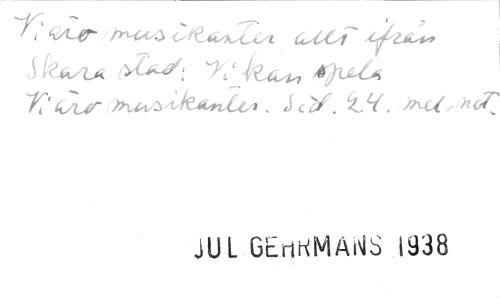 Vi äro musikanter allt ifrån
Skara stad: Vi kan spela
Vi äro musikanter. Sid. 24. mel. not.
JUL GEHRMANS 1938